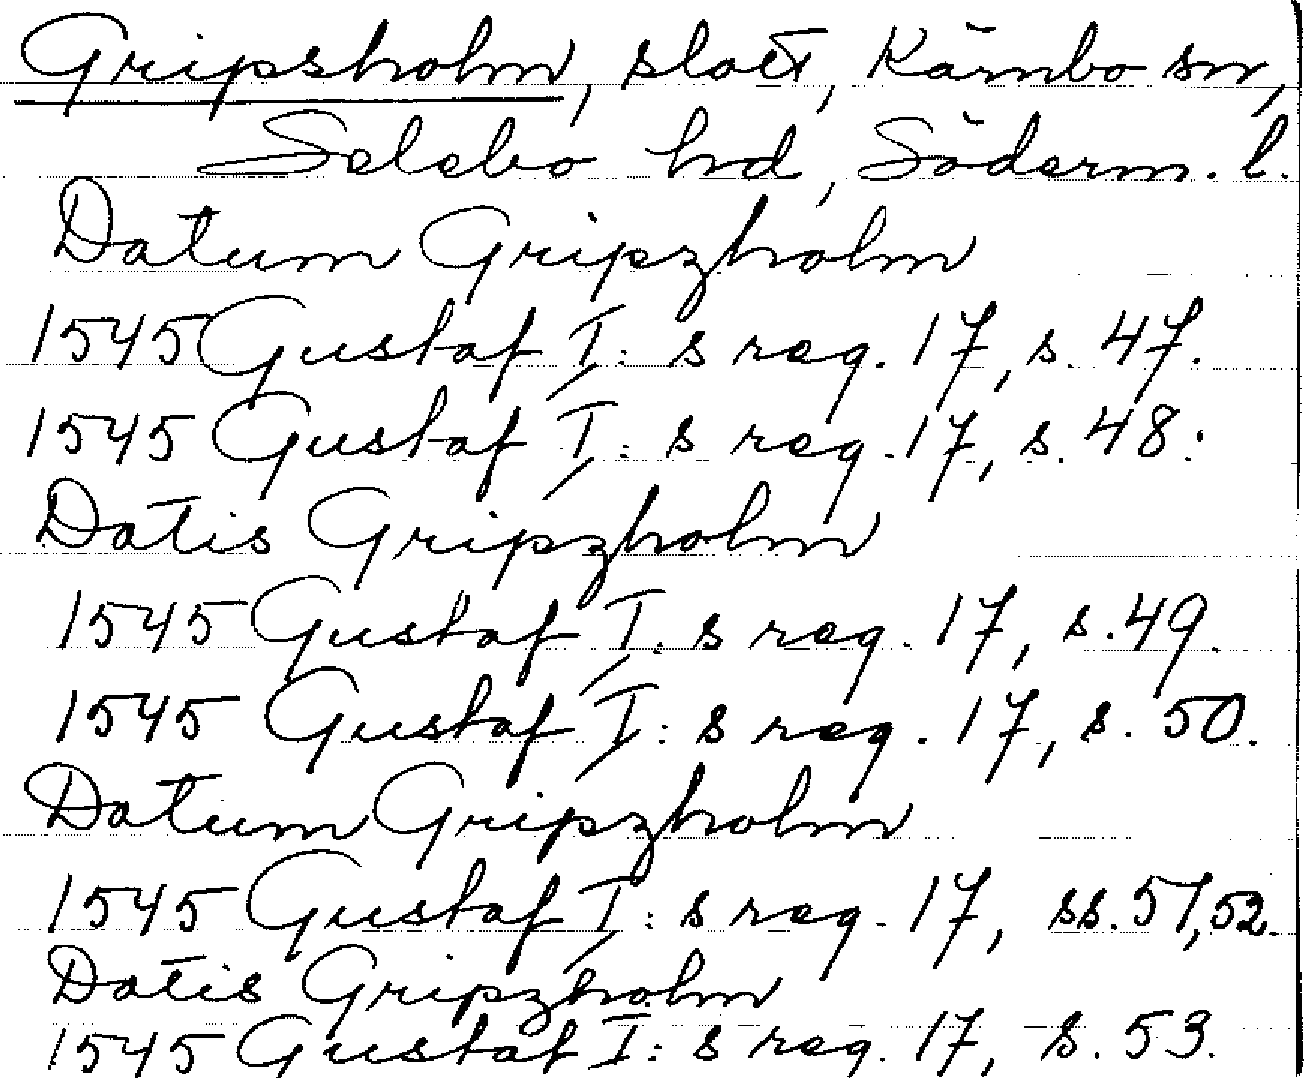 Gripsholm, slott, Kärnbo sn,
Selebo hd, Söderm. l.
Datum Gripzholm
1545 Gustaf I: s reg. 17, s. 47.
1545 Gustaf I: s reg. 17, s. 48.
Datis Gripzholm
1545 Gustaf I: s reg. 17, s. 49.
1545 Gustaf I: s reg. 17, s. 50.
Datum Gripzholm
1545 Gustaf I: s reg. 17, ss. 51, 52.
Datis Gripzholm
1545 Gustaf I: s reg. 17, s. 53.